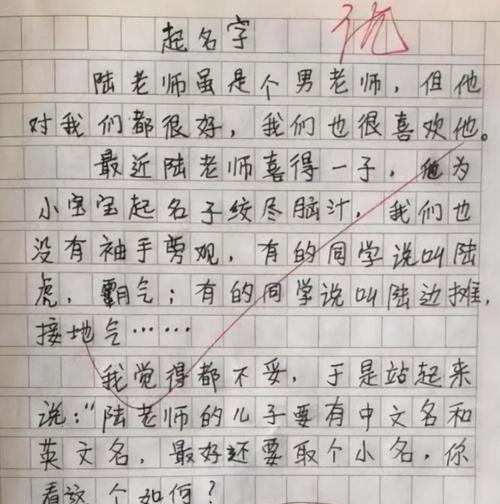 起名字 优
陆老师虽是个男老师，但他
对我们都很好，我们也很喜欢他。
最近陆老师喜得一子，他为
小宝宝起名子绞尽脑汁，我们也
没有袖手剪观，有的同学说叫陆
虎，霸气；有的同学说叫陆边摊，
接地气……
我觉得都不妥，于是站起来
说：“陆老师的儿子要有中文名和
英文名，最好还要取个小名，你
看这个如何？